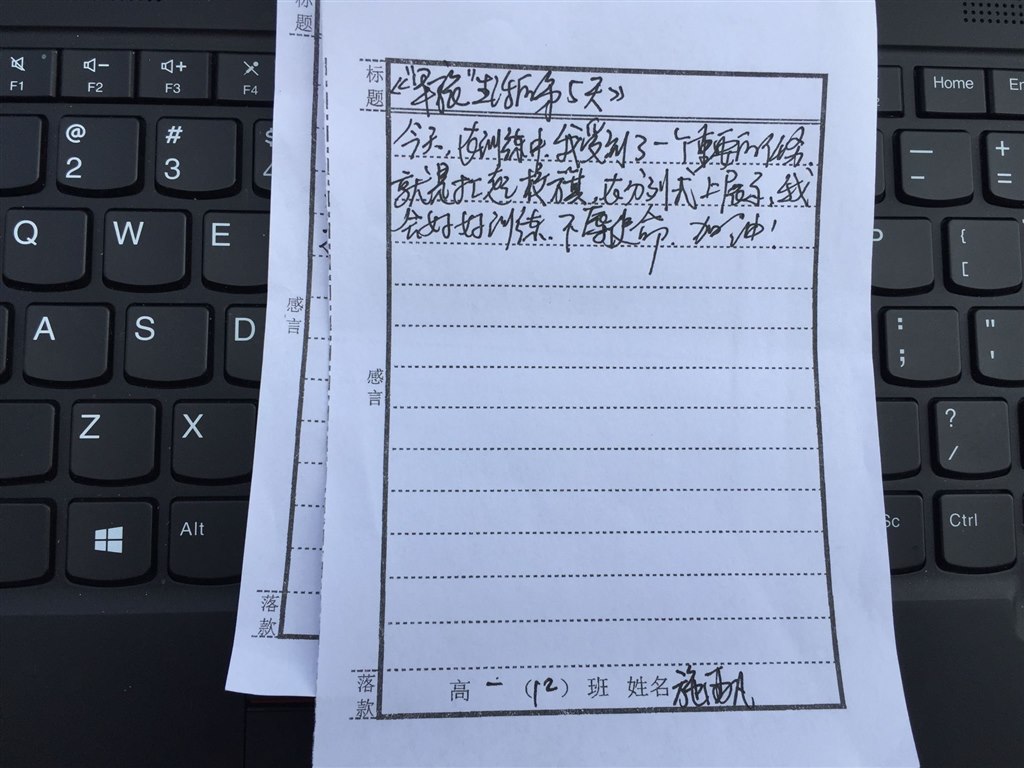 标题
《"军旅"生活的第5天》
今天,在训练中,我受到了一个重要的任务,
就是扛起校旗,在分列式上展示,我
会好好训练,不辱使命,加油!
感言
落款
高一(12)班 姓名 施
标题
感言
落款
F1
F2
F3
F4
Home
@
2
#
3
$
4
—
-
+
=
Q
W
E
P
{
[
A
S
D
:
;
"
'
Z
X
?
/
Alt
Sc
Ctrl